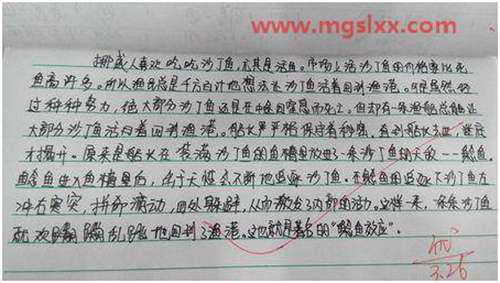 www.mgslxx.com
挪威人喜欢吃沙丁鱼,尤其是活鱼。市场上活沙丁鱼的价格要比死
鱼高许多。所以渔民总是千方百计地想法让沙丁鱼活着回到渔港。可是虽然经
过种种努力,绝大部分沙丁鱼还是在中途因窒息而死亡。但却有一条渔船总能让
大部分沙丁鱼活着回到渔港。船长严格保守着秘密,直到船长去世,谜底
才揭开。原来是船长在装满沙丁鱼的鱼槽里放进一条沙丁鱼的天敌——鲶鱼。
鲶鱼进入鱼槽里后,由于天性会不断地追逐沙丁鱼。在鲶鱼的追逐下沙丁鱼左
冲右突,拼命游动,四处躲避,从而激发了内部的活力。这样一来,一条条沙丁鱼
就欢蹦乱跳地回到了渔港。这也就是著名的“鲶鱼效应”。
优
3.26